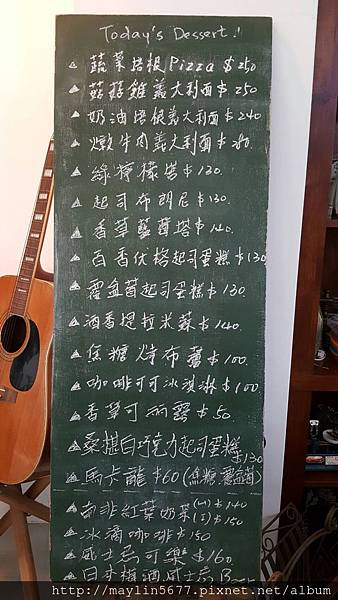 Today's Dessert!
蔬菜培根Pizza $250
菇菇雞義大利面$250
奶油培根義大利面$240
燉牛肉義大利面$280
綠檸檬塔$130.
起司布朗尼$130.
香草藍莓塔$140.
百香优格起司蛋糕$130
覆盆莓起司蛋糕$130.
酒香提拉米蘇$140.
焦糖烤布蕾$100.
咖啡可可冰淇淋$100.
香草可麗露$50
桑椹白巧克力起司蛋糕
$130
馬卡龍$60(焦糖.覆盆莓)
南非紅葉奶茶(H)$140
(I)$150
冰滴咖啡$150
威士忌可樂$160
日本梅酒威士忌
http://maylin5677.pixnet.net/album